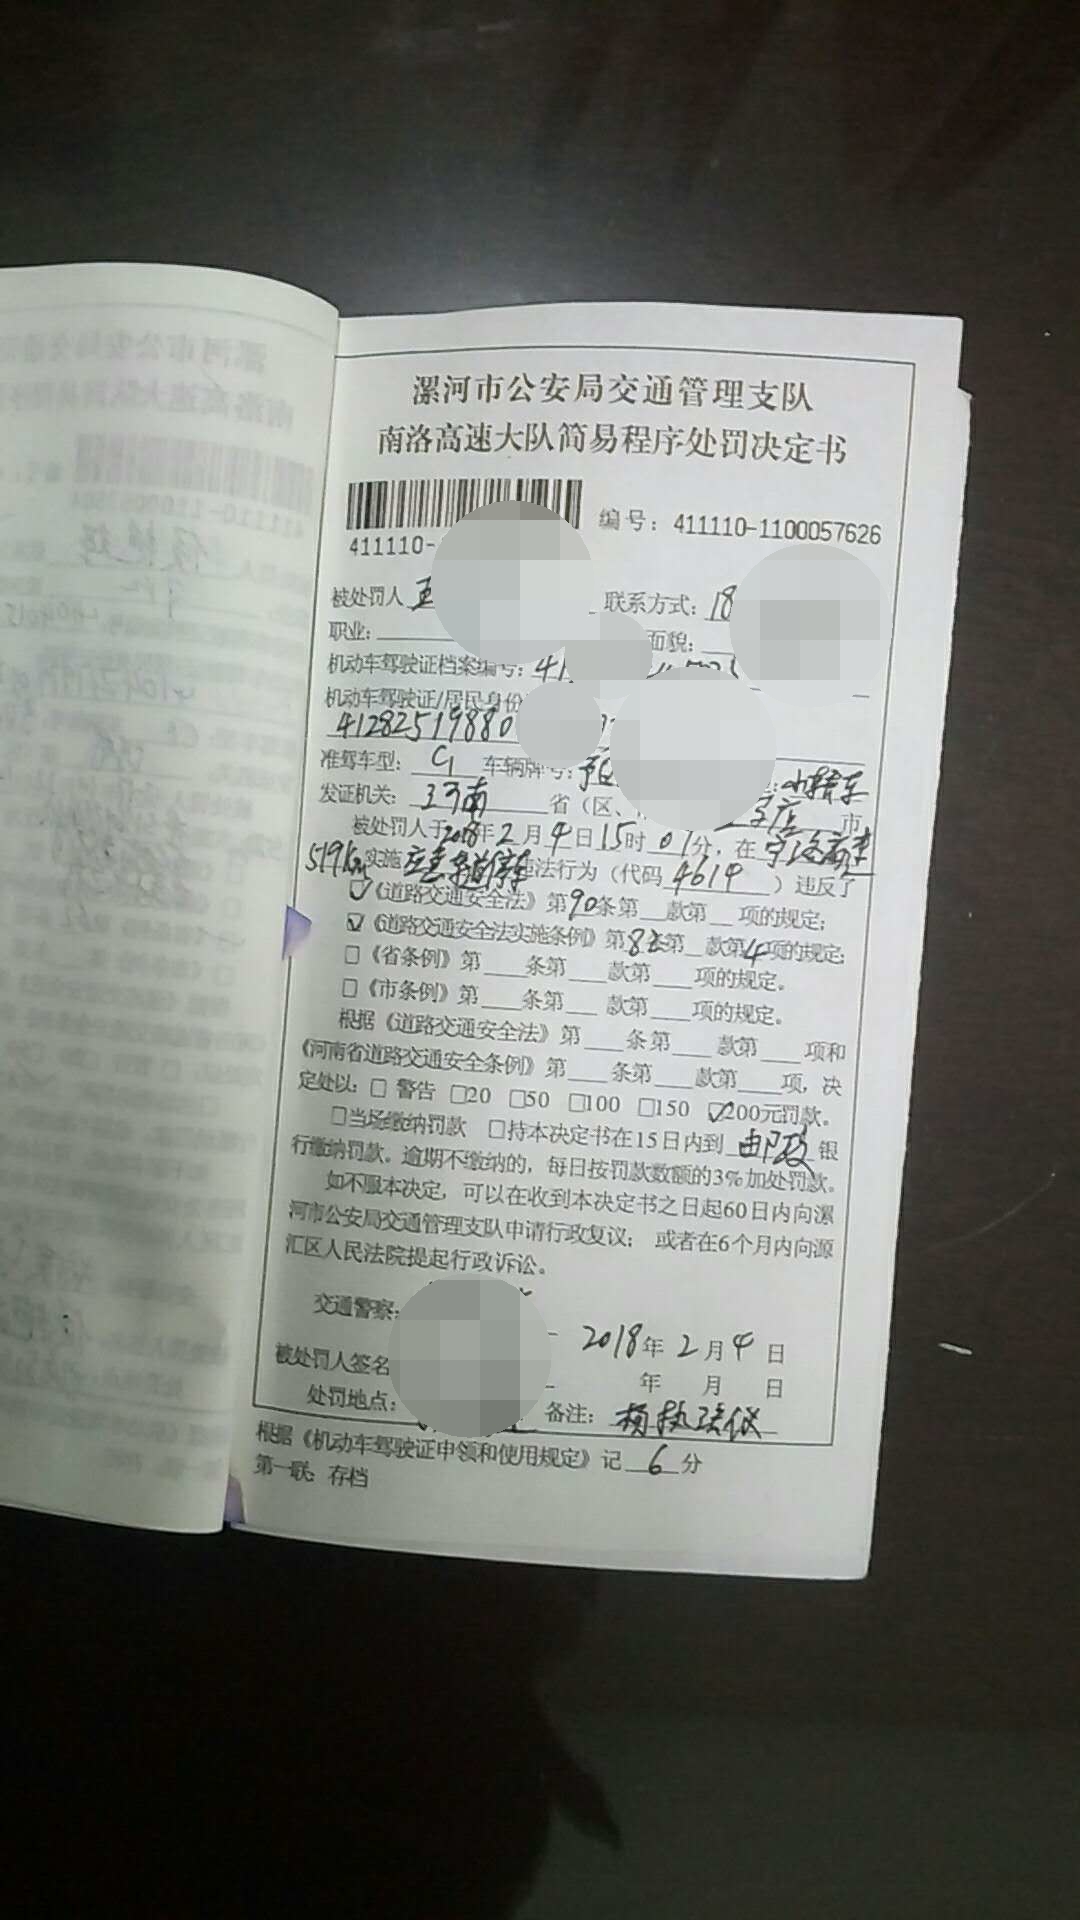 漯河市公安局交通管理支队
南洛高速大队简易程序处罚决定书
编号：411110-1100057626
411110-
被处罚人 联系方式：18
职业： 面貌：
机动车驾驶证档案编号：41
机动车驾驶证/居民身份
41282519880
准驾车型：C1 车辆牌号： 小轿车
发证机关：河南 省（区、 市
被处罚人于2018年2月4日15时01分，在宁洛高速
519km实施在车道停车违法行为（代码4614）违反了
☑《道路交通安全法》第90条第 款第 项的规定；
☑《道路交通安全法实施条例》第82第 款第4项的规定；
□《省条例》第 条第 款第 项的规定。
□《市条例》第 条第 款第 项的规定。
根据《道路交通安全法》第 条第 款第 项和
《河南省道路交通安全条例》第 条第 款第 项，决
定处以：□ 警告 □20 □50 □100 □150 ☑200元罚款。
□当场缴纳罚款 □持本决定书在15日内到 邮政 银
行缴纳罚款。逾期不缴纳的，每日按罚款数额的3%加处罚款。
如不服本决定，可以在收到本决定书之日起60日内向漯
河市公安局交通管理支队申请行政复议； 或者在6个月内向源
汇区人民法院提起行政诉讼。
交通警察： 2018年2月4日
被处罚人签名 年 月 日
处罚地点： 备注：
根据《机动车驾驶证申领和使用规定》记 6 分
第一联：存档